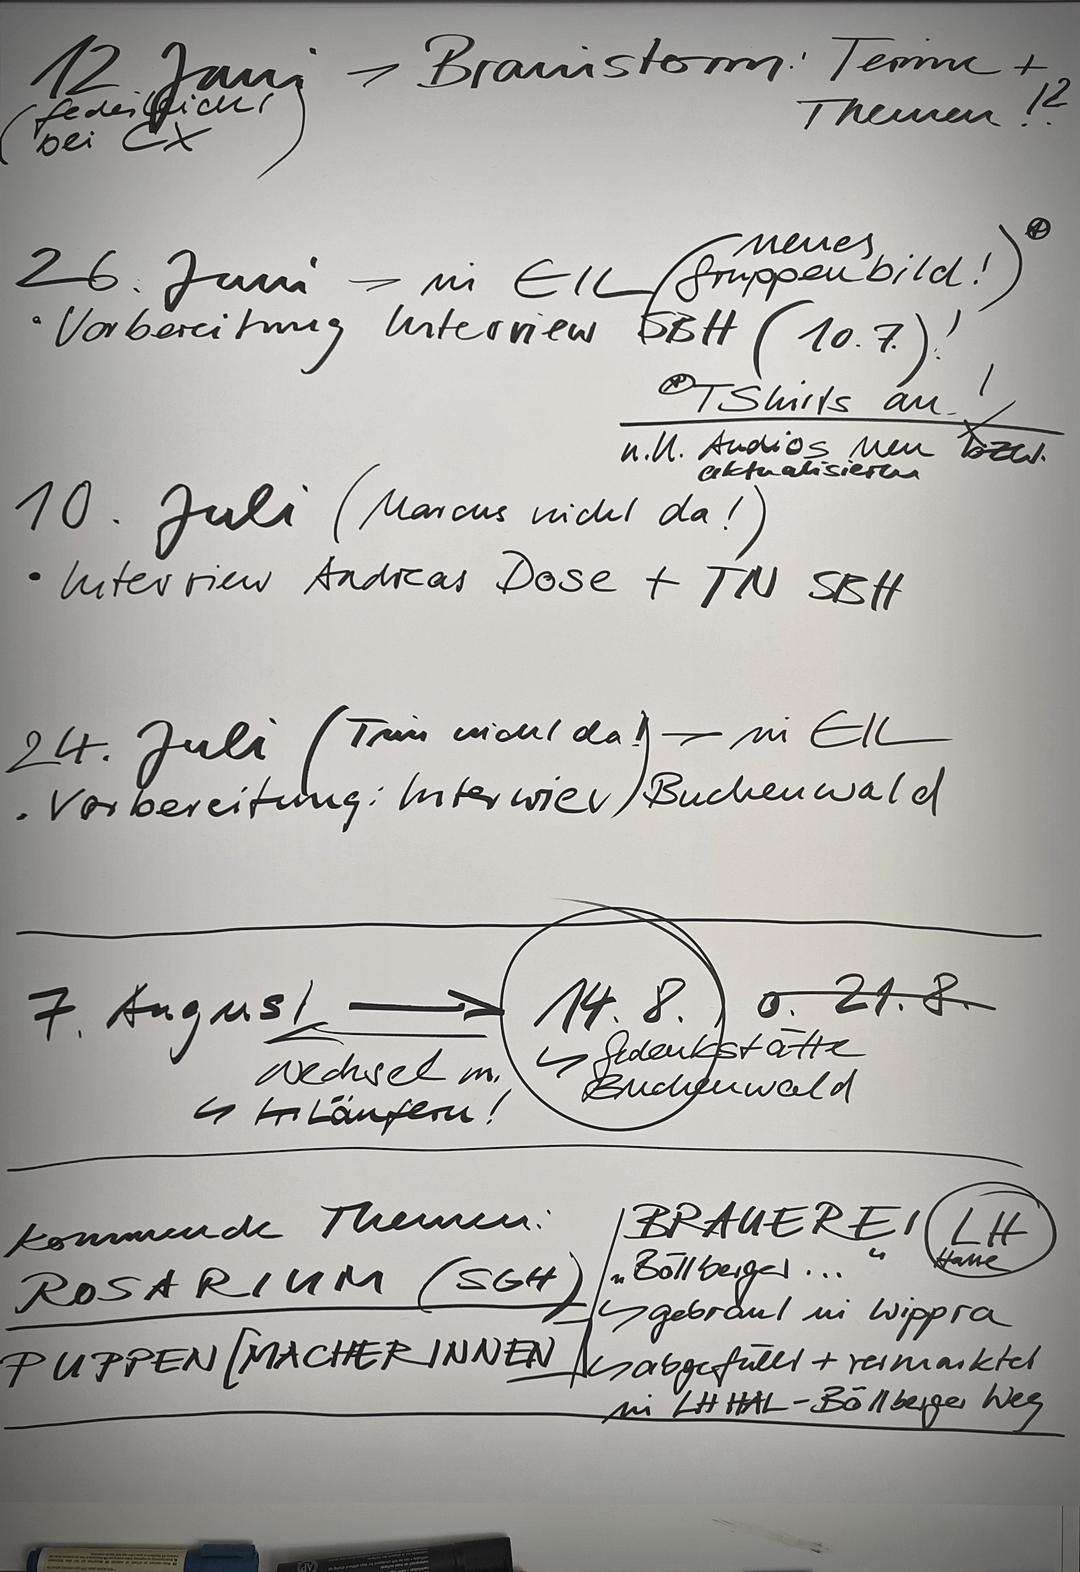 12 Juni → Brainstorm: Termine +
Themen!?
(federführend
bei CX)
26. Juni → in EIL (neues
Gruppenbild!) ⊕
• Vorbereitung Interview SBH (10.7.)!
⊕ TShirts an!
u.U. Audios neu bzw.
aktualisieren
10. Juli (Marcus nicht da!)
• Interview Andreas Dose + TN SBH
24. Juli (Trin nicht da!) → in EIL
• Vorbereitung: Interview Buchenwald
7. August → 14.8. o. 21.8.
↳ Gedenkstätte
Buchenwald
Wechsel m.
↳ Läufern!
Kommende Themen:
ROSARIUM (SGH)
PUPPEN[MACHERINNEN
BRAUEREI LH
Halle
„Böllberger ... “
↳ gebraut in Wippra
↳ abgefüllt + vermarktet
in LH HAL - Böllberger Weg